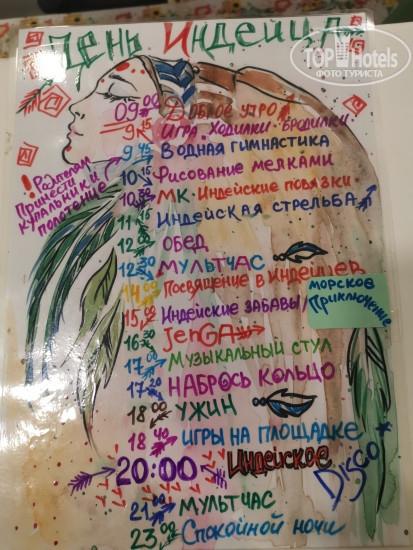 TOPHotels
ФОТО ТУРИСТА
День Индейца
09:00 Доброе утро!
9:15 Игра-Ходилки-Бродилки
9:45 Водная гимнастика
10:15 Рисование мелками
10:30 МК-Индейские повязки
11:15 Индейская стрельба
12:00 Обед
12:30 Мультчас
14:00 Посвящение в Индейцев
15:00 Индейские забавы/
Морское
Приключение
16:30 JenGA
17:00 Музыкальный стул
17:20 Набрось кольцо
18:00 Ужин
18:40 Игры на площадке
20:00 Индейское
Disco
21:00 Мультчас
23:00 Спокойной ночи
! Родителям
Принести
купальник и
полотенце